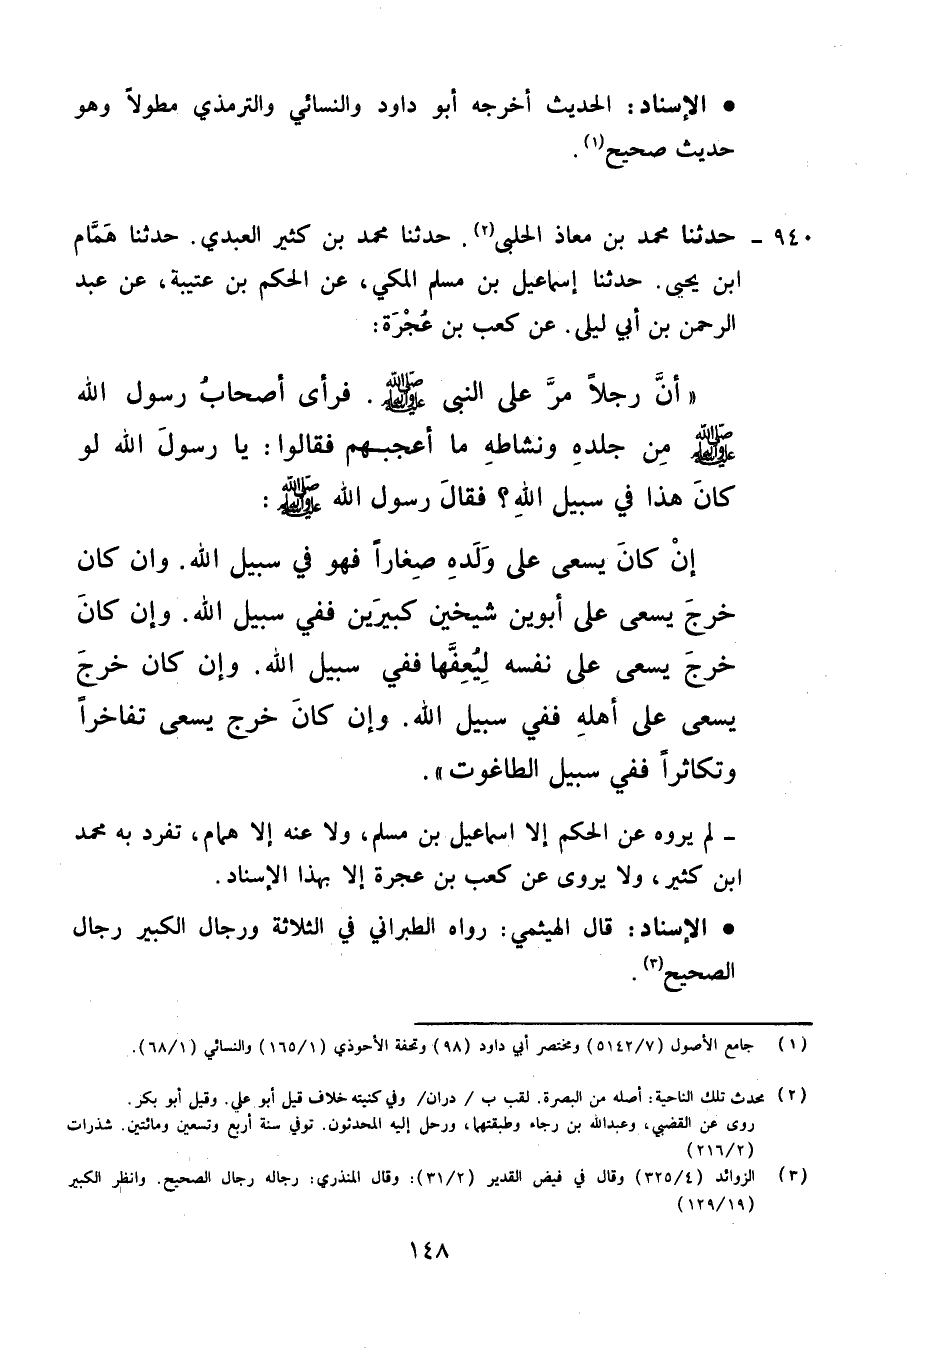 ● الإسناد: الحديث أخرجه أبو داود والنسائي والترمذي مطولاً وهو
حديث صحيح(١).
٩٤٠ - حدثنا محمد بن معاذ الحلبي(٢). حدثنا محمد بن كثير العبدي. حدثنا هَمَّام
ابن يحيى. حدثنا إسماعيل بن مسلم المكي، عن الحكم بن عتيبة، عن عبد
الرحمن بن أبي ليلى. عن كعب بن عُجْرَة:
« أنَّ رجلاً مرَّ على النبي ﷺ. فرأى أصحابُ رسول الله
ﷺ مِن جلدهِ ونشاطهِ ما أعجبـهم فقالوا: يا رسولَ الله لو
كانَ هذا في سبيل اللهِ؟ فقالَ رسول الله ﷺ:
إنْ كانَ يسعى على وَلَدهِ صِغاراً فهو في سبيل الله. وان كان
خرجَ يسعى على أبوين شيخين كبيرَين ففي سبيل الله. وإن كانَ
خرجَ يسعى على نفسه لِيُعِفَّها ففي سبيل الله. وإن كان خرجَ
يسعى على أهلهِ ففي سبيل الله. وإن كانَ خرج يسعى تفاخراً
وتكاثراً ففي سبيل الطاغوت ».
- لم يروه عن الحكم إلا اسماعيل بن مسلم، ولا عنه إلا همام، تفرد به محمد
ابن كثير، ولا يروى عن كعب بن عجرة إلا بهذا الإسناد.
● الإسناد: قال الهيثمي: رواه الطبراني في الثلاثة ورجال الكبير رجال
الصحيح(٣).
(١) جامع الأصول (٥١٤٢/٧) ومختصر أبي داود (٩٨) وتحفة الأحوذي (١٦٥/١) والنسائي (٦٨/١).
(٢) محدث تلك الناحية: أصله من البصرة. لقب ب / دران/ وفي كنيته خلاف قيل أبو علي. وقيل أبو بكر.
روى عن القضبي، وعبدالله بن رجاء وطبقتهما، ورحل إليه المحدثون. توفي سنة أربع وتسعين ومائتين. شذرات
(٢١٦/٢)
(٣) الزوائد (٣٢٥/٤) وقال في فيض القدير (٣١/٢): وقال المنذري: رجاله رجال الصحيح. وانظر الكبير
(١٢٩/١٩)
١٤٨